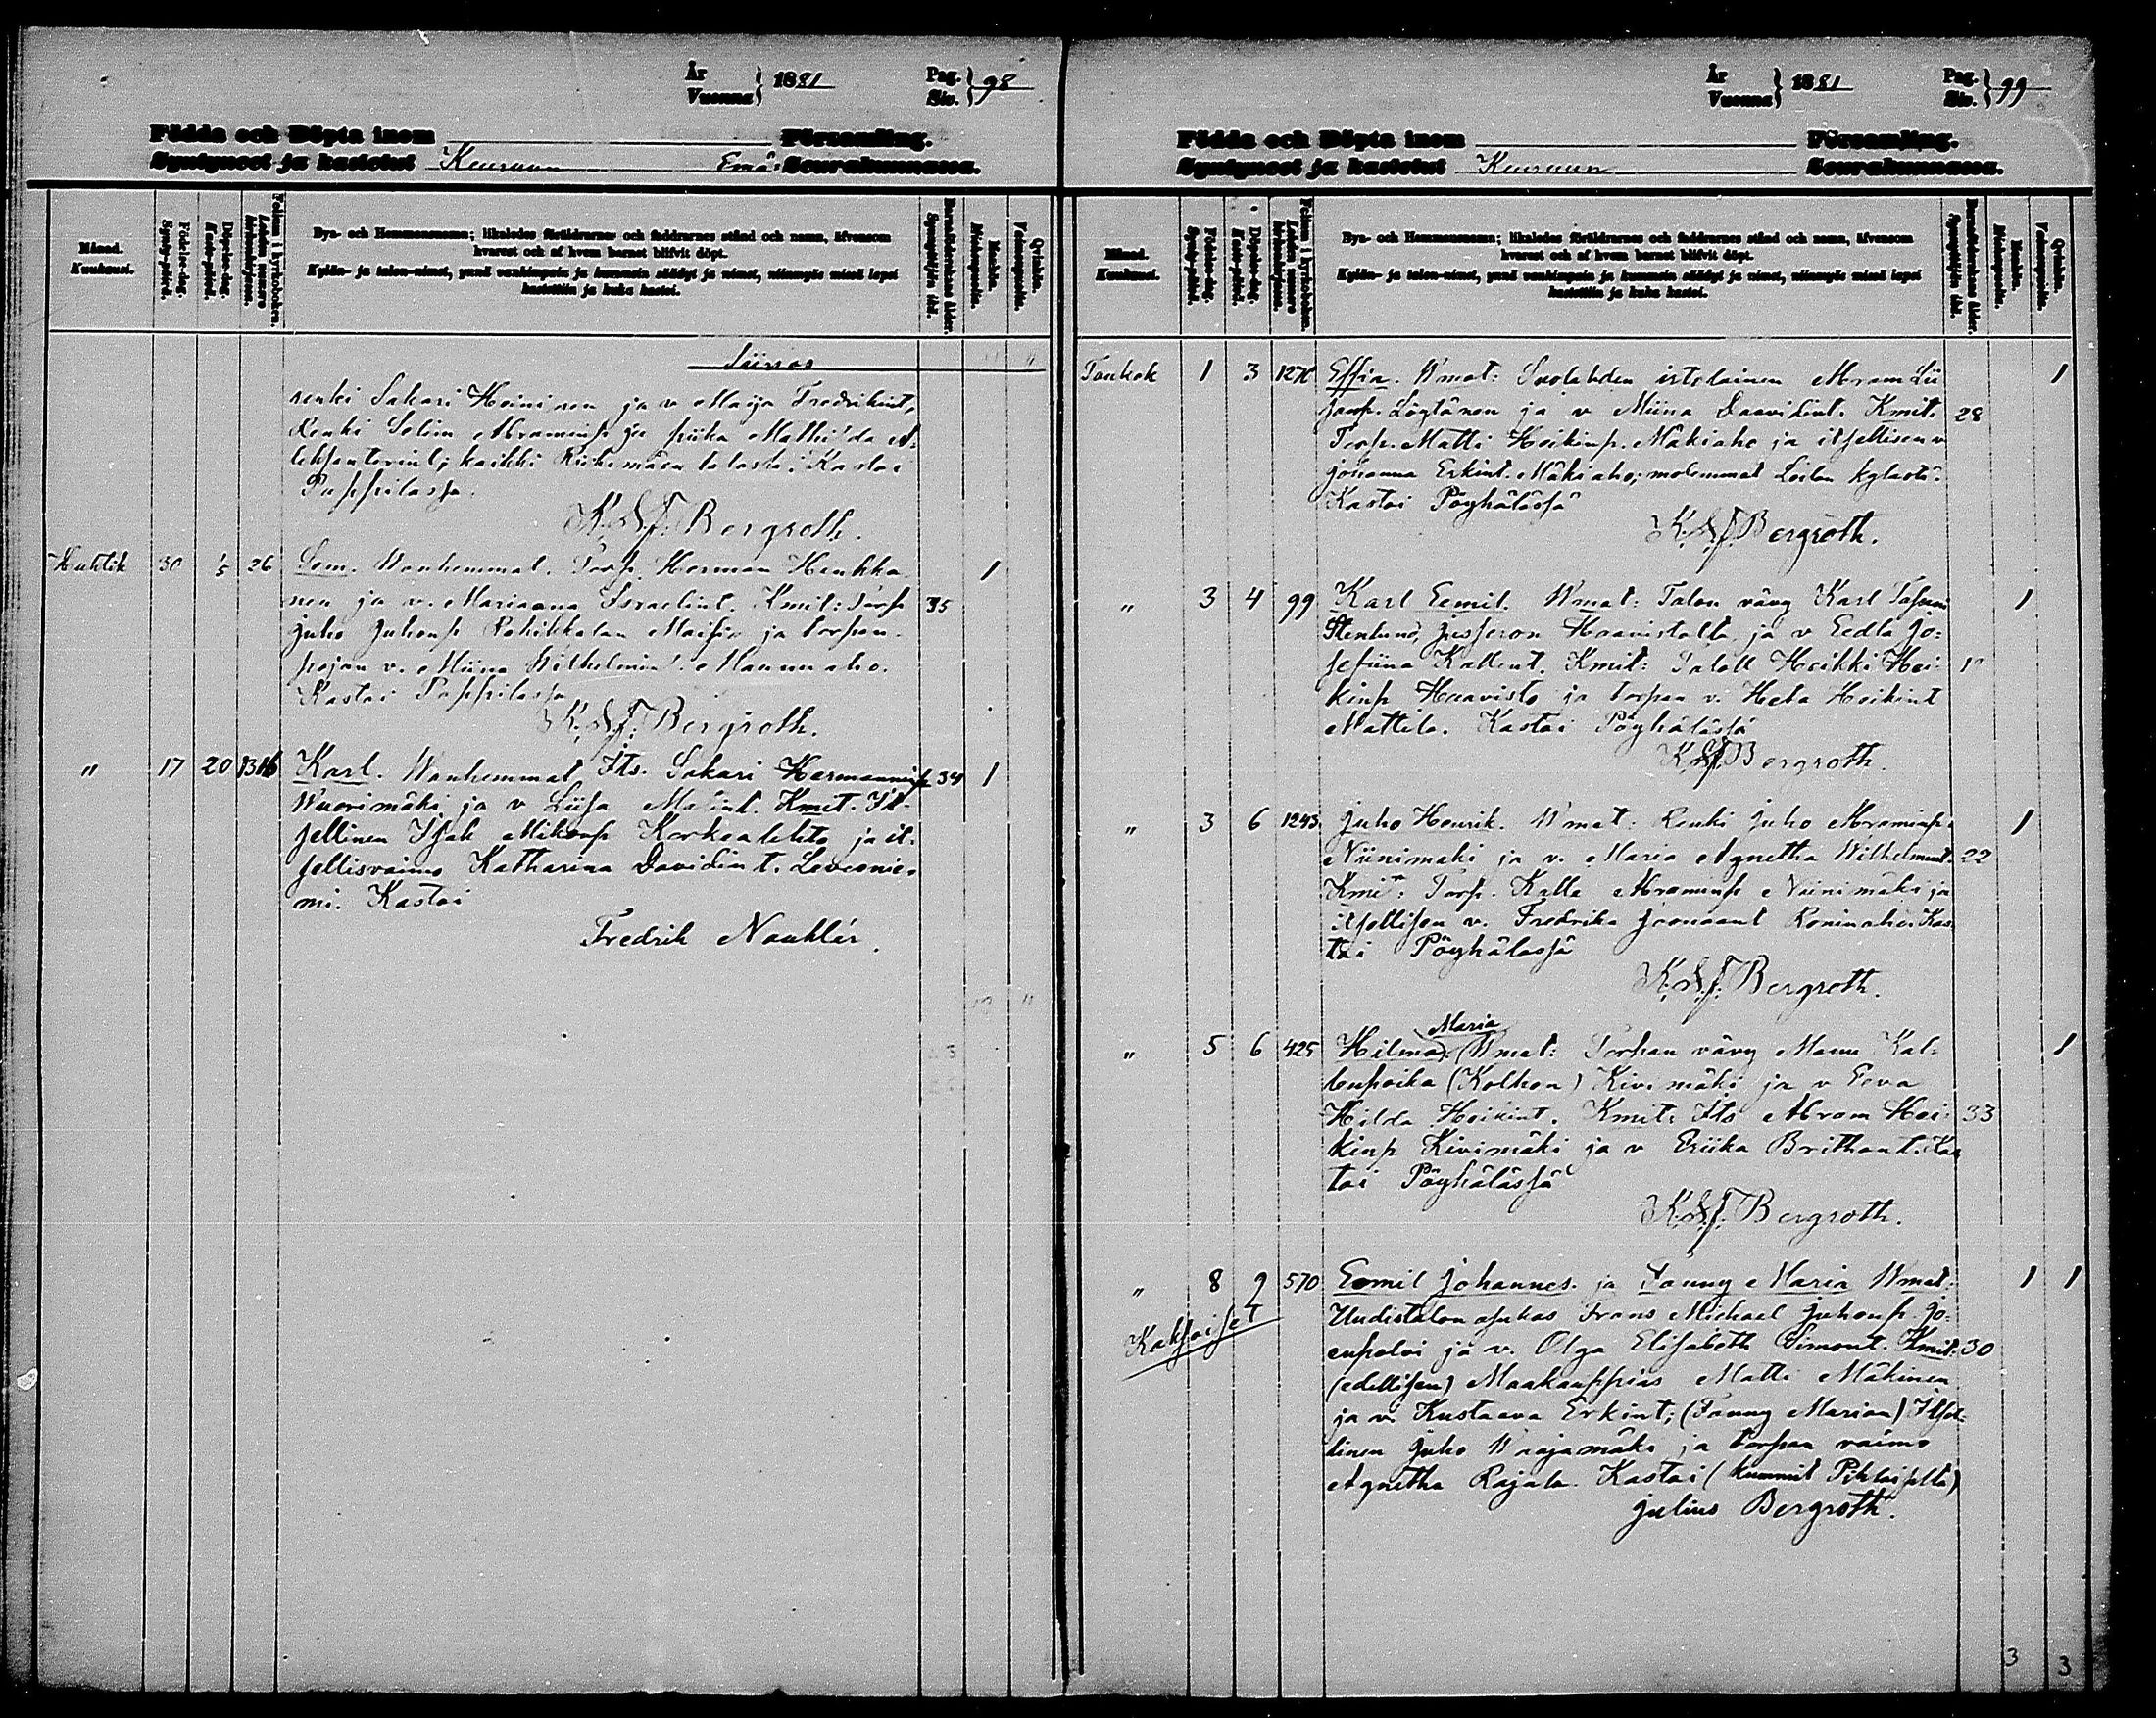 År
Vuonna } 1881
Pag.
Siv. } 98
Födda och Döpta inom Församling.
Syntyneet ja kastetut Keuruun Emä: Seurakunnassa.
Månad.
Kuukausi.
Födelse-dag.
Synty-päivä.
Döpelse-dag.
Kaste-päivä.
Folium i kyrkoboken.
Lehden numero kirkonkirjassa.
Bya- och Hemmansnamn; likaledes föräldrarnes och faddrarnes stånd och namn, äfvensom
hvarest och af hvem barnet blifvit döpt.
Kylän- ja talon-nimet, ynnä vanhimpain ja kummein säädyt ja nimet, niinmyös missä lapsi
kastettiin ja kuka kastoi.
Barnaföderskans ålder.
Synnyttäjän ikä.
Mankön.
Miehenpuolia.
Qvinkön.
Vaimonpuolia.
Siirros
renki Sakari Heininen ja v Maija Fredrikint,
Renki Selim Abraminp ja piika Mathilda A-
leksanterint; kaikki Riihimäen talosta. Kastoi
Pappilassa.
K. J. Bergroth.
Huhtik 30 1/5 26 Sem. Wanhemmat. Torp. Herman Henkko- 1
nen ja v. Mariaana Israelint. Kmit: Torp 35
Juho Juhonp Maisio ja torpan-
pojan v. Miina Wilhelmint. Maunuaho.
Kastoi Pappilassa
K. J. Bergroth.
" 17 20 Karl. Wanhemmat Its. Sakari Hermanninp 34 1
Wuorimäki ja v Liisa Matint. Kmit. It-
sellinen Isak Mikonp Korkealehto ja it-
sellisvaimo Katharina Davidint. Leveonie-
mi. Kastoi
Fredrik Nauklér.
År
Vuonna } 1881
Pag.
Siv. } 99
Födda och Döpta inom Församling.
Syntyneet ja kastetut Keuruun Seurakunnassa.
Månad.
Kuukausi.
Födelse-dag.
Synty-päivä.
Döpelse-dag.
Kaste-päivä.
Folium i kyrkoboken.
Lehden numero kirkonkirjassa.
Bya- och Hemmansnamn; likaledes föräldrarnes och faddrarnes stånd och namn, äfvensom
hvarest och af hvem barnet blifvit döpt.
Kylän- ja talon-nimet, ynnä vanhimpain ja kummein säädyt ja nimet, niinmyös missä lapsi
kastettiin ja kuka kastoi.
Barnaföderskans ålder.
Synnyttäjän ikä.
Mankön.
Miehenpuolia.
Qvinkön.
Vaimonpuolia.
Toukok 1 3 Effia. Wmat: Suolahden Abram Lii 1
sanp. Löytänen ja v Miina Daavidint. Kmit. 28
Torp. Matti Heikinp. Mäkiaho ja itsellisen v
Johanna Erkint. Mäkiaho; molemmat kylästä.
Kastoi Pöyhälässä
K. J. Bergroth.
" 3 4 99 Karl Eemil. Wmat: Talon vävy Karl 1
Stenlund, Haavistolta ja v Eedla Jo-
sefiina Kallent. Kmit: Taloll Heikki Hei-
kinp Haavisto ja torpan v. Heta Heikint
Mattila. Kastoi Pöyhälässä
K. J. Bergroth.
" 3 6 1243 Juho Henrik. Wmat: Renki Juho Abraminp. 1
Niinimäki ja v. Maria Agnetha Wilhelmint. 22
Kmit: Torp. Kalle Abraminp Niinimäki ja
itsellisen v. Fredrika Joonaant Kas-
toi Pöyhälässä
K. J. Bergroth.
Maria
" 5 6 425 Hilma. Wmat: Torpan vävy Manu Kal- 1
lenpoika (Kolhon) Kivimäki ja v Eeva
Hilda Heikint. Kmit: Its Abram Hei- 33
kinp Kivimäki ja v Eriika Brithant. Kas
toi Pöyhälässä
K. J. Bergroth.
" 8 9 570 Eemil Johannes. ja Fanny Maria Wmat: 1 1
Kaksoiset
Uudistalon asukas Frans Michael Juhonp. Jo-
enpolvi ja v. Olga Elisabeth Simont. Kmit: 30
(edellisen) Maakauppias Matti Mäkinen
ja v. Kustaava Erkint; (Fanny Marian) Itsel-
linen Juho Waajamäki ja torpan vaimo
Agnetha Rajala. Kastoi (kummit Pihlajselta)
Julius Bergroth.
3 3